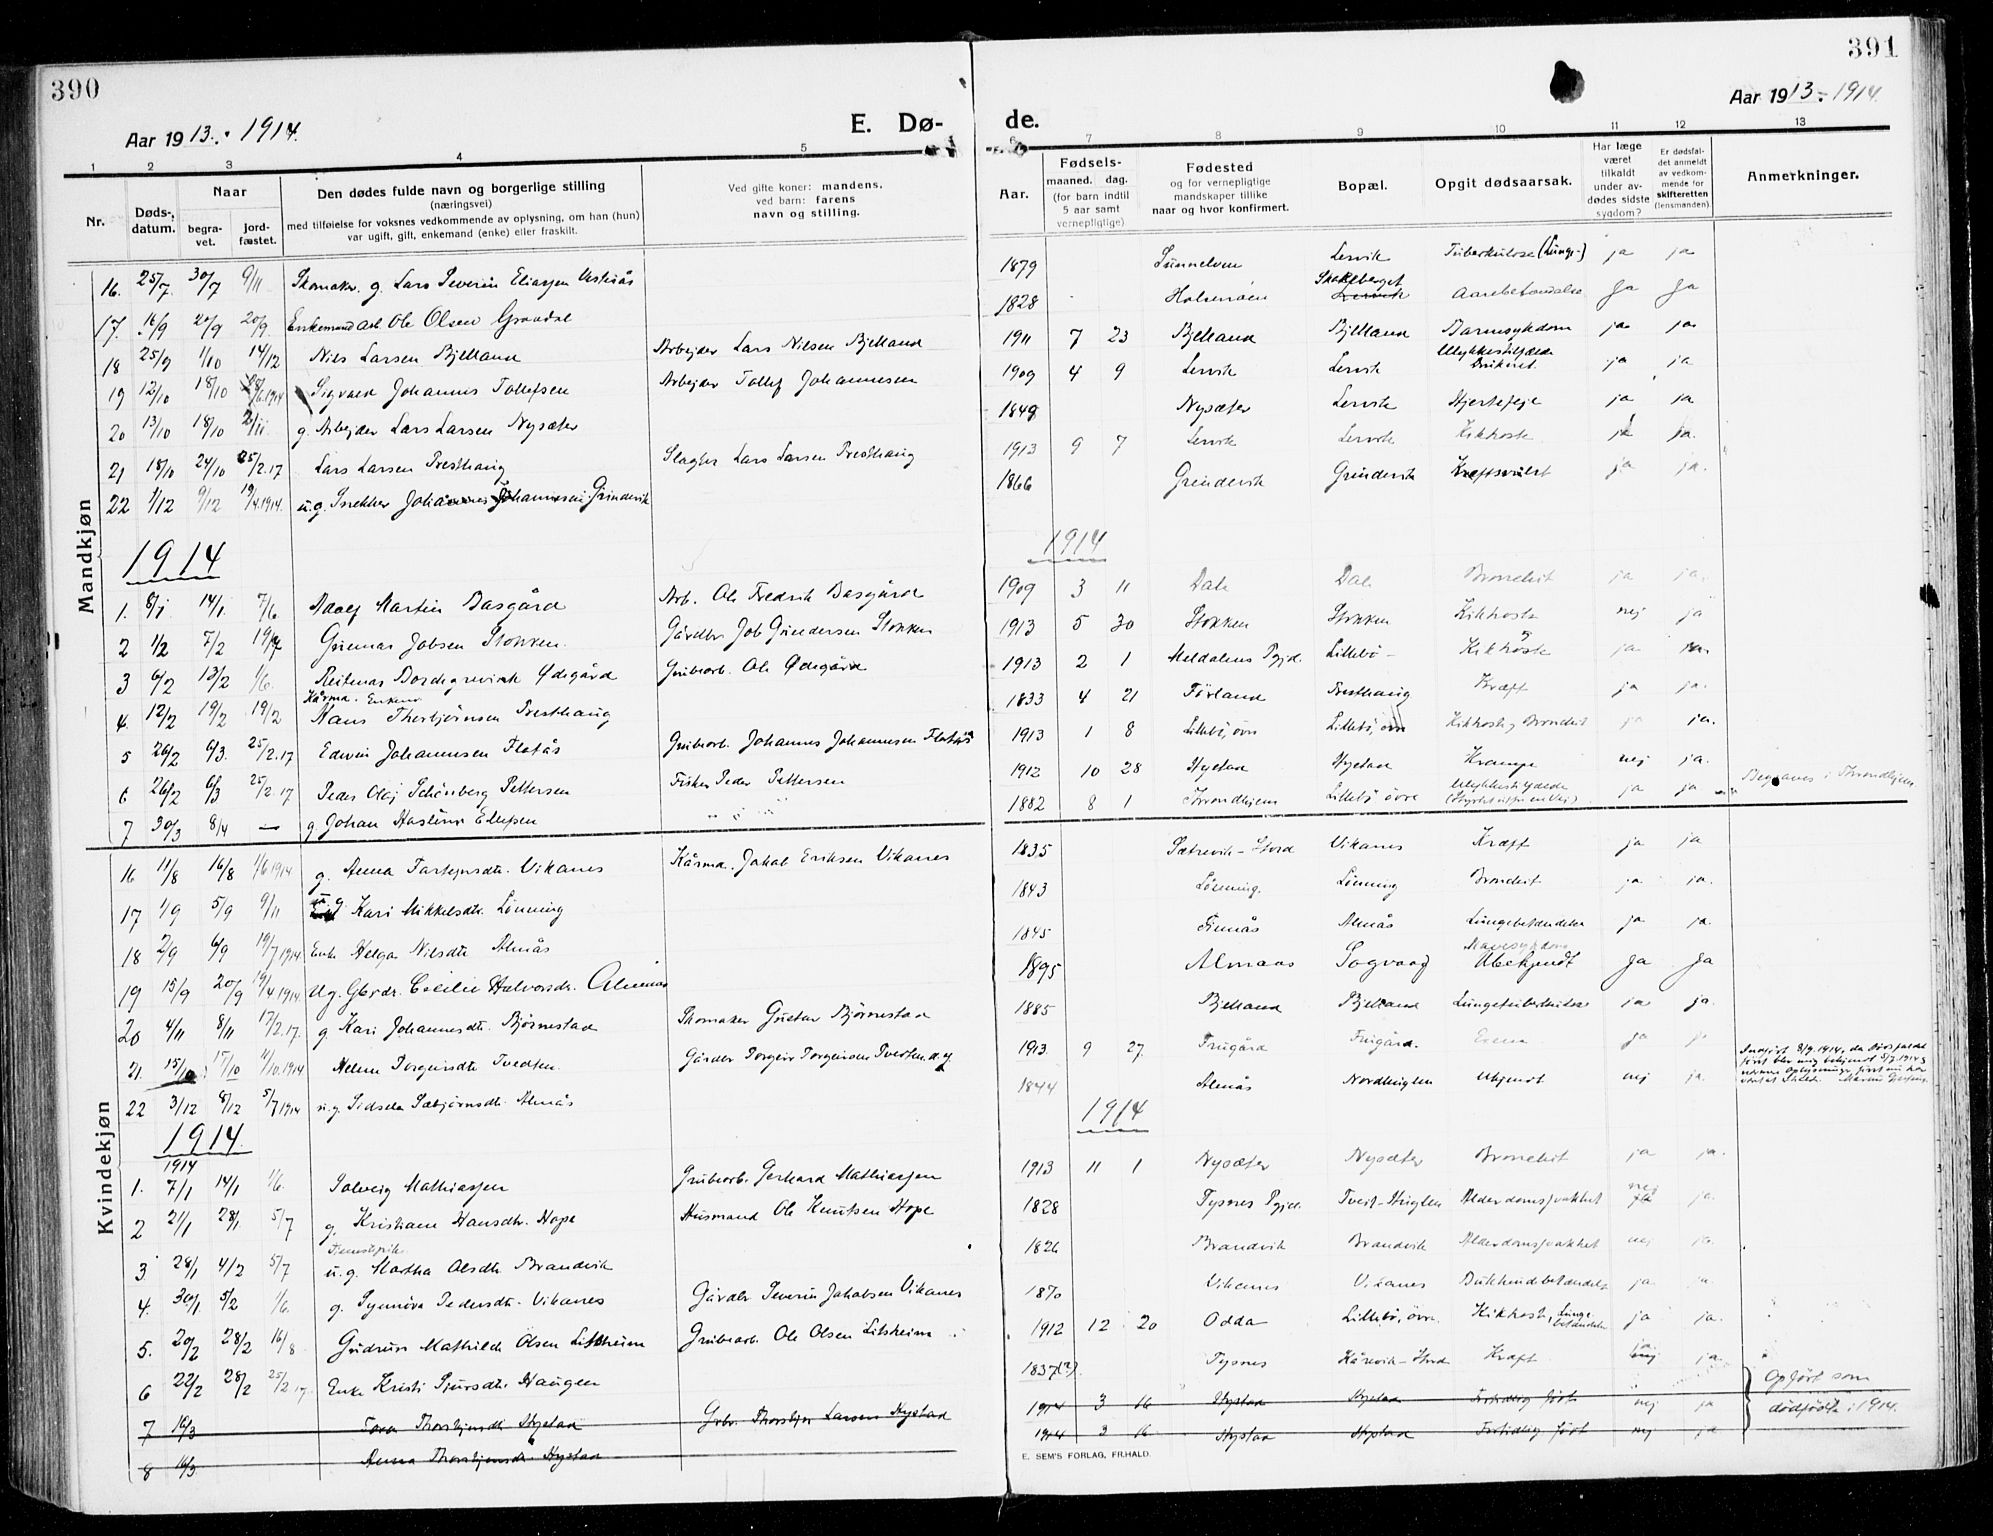 390
391
Aar 1913. 1914.
E. Dø-
de.
Aar 1913-1914.
1 2 3 4 5 6 7 8 9 10 11 12 13
Nr. Døds-datum. Naar begra-vet. jord-fæstet. Den dødes fulde navn og borgerlige stilling (næringsvei) med tilføielse for voksnes vedkommende av oplysning, om han (hun) var ugift, gift, enkemand (enke) eller fraskilt. Ved gifte koner: mandens, ved barn: farens navn og stilling. Aar. Fødsels- maaned. dag. (for barn indtil 5 aar samt vernepligtige) Fødested og for vernepligtige mandskaper tillike naar og hvor konfirmert. Bopæl. Opgit dødsaarsak. Har læge været tilkaldt under av-dødes sidste sygdom? Er dødsfal-det anmeldt av vedkom-mende for skifteretten (lensmanden). Anmerkninger.
Mandkjøn
16. 25/7. 30/7 9/11 Skomaker. g. Lars Severin Eliassen 1879 Sunnelven Lervik Tuberkulose (Lunge-) ja ja
17. 16/9 20/9 20/9. Enkemand Arb. Ole Olsen Graadal 1828 Halsenøen Skakeberget Lervik Ja Ja
18 25/9 1/10 14/12 Nils Larsen Bjelland Arbejder Lars Nilsen Bjelland 1911 7 23 Bjelland Bjelland Barnesykdom ja ja
19 12/10 18/10 28/6.1914 Sigvald Johannes Tollefsen Arbejder Tollef Johannesen 1909 4 9 Lervik Lervik Ulykkestilfælde Druknet. ja ja
20 13/10 18/10 g. Arbejder Lars Larsen Nysæter 1849 Nysæter Lervik Hjertefeje ja ja
21 18/10 24/10 25/2.17 Lars Larsen Presthaug Slagter Lars Larsen Presthaug 1913 9 7 Lervik Lervik Kikhoste ja ja.
22 1/12 9/12 19/4.1914. u.g. Snekker Johannes Johannesen Grindevik 1866 Grindevik Grindevik Kræftsvulst ja ja.
1914 1914
1. 8/1 14/1. 7/6 Adolf Martin Basgård Arb. Ole Fredrik Basgård 1909 3 11 Dale Dale Bronchit ja ja.
2 1/2 7/2 Gunnar Jobsen Stokken. Gårdbr. Job Gundersen Stokken 1913 5 30 Stokken Stokken Kikhoste nej ja
3 6/2 13/2 1/6. Reitenas Bordegrevink Ødegård Grubearb. Ole Ødegård 1913 2 1 Meldalens Pgjd. Lillebö - Kikhoste ja
4. 12/2 19/2 19/2 Kårma. Enkem. Hans Thorbjørnsen Presthaug 1833 4 21 Førland Presthaug Kræft ja ja.
5 26/2 6/3. 25/2.17 Edvin Johannesen Flatås Grubearb. Johannes Johannesen Flatås 1913 1 8 Lillebö, övre Lillebö, övre Kikhoste, Bronchit ja ja.
6 26/2 6/3 25/2.17 Peder Olaj Schönberg Pettersen Fisker Peder Pettersen 1912 10 28 Hystad Hystad Krampe nej ja.
7 30/3 8/4 — g Johan Hastinu Ellefsen 1882 8 1 Trondhjem Lillebö övre Ulykkestilfælde ja ja Begraves i Trondhjem
Kvindekjøn
16 11/8 16/8 1/6 1914 g. Anna Vikanes Kårma. Jakob Eriksen Vikanes 1835 Sætrevik - Stord Vikanes Kræft ja ja
17 1/9 5/9 9/11 u.g. Kari Mikkelsdtr. Lönning 1843 Lönning. Lönning Bronchit ja ja.
18 2/9 6/9 19/7 1914 Enke Helga Nilsdtr Almås 1845 Finnås Almås Lungebetændelse ja ja
19 15/9 20/9 19/4 1914. Ug. Gbrdr. Cecilie Halvorsdr. Almaas 1895 Almaas Sogvaag Mavesykdom Ubekjendt Ja Ja
20 4/11 8/11 17/2.17. g. Kari Johannesdtr. Bjørnestad Skomaker Gustav Bjørnestad 1885 Bjelland Bjelland Lungetuberkulose ja ja.
21. 15/10 17/10 11/10.1914 Helene Torgeirsdtr Tvedten. Gårdbr Torgeir Torgeirsen Tvedten 1913. 9 27. Frugård Frugård. ja Indført 8/9.1914, da Dødsfaldet først blev mig bekjendt 5/7.1914
22 3/12 8/12 5/7 1914 u.g. Sidsela Sæbjørnsdtr. Almås 1844 Almås Nordhuglen Ukjendt nej ja.
1914. 1914
1914
1. 7/1 14/1 1/6. Solveig Mathiassen Grubearb. Gerhard Mathiassen 1913 11 1 Nysæter Nysæter Bronchit ja ja.
2 21/1 28/1. 5/7 g. Kristiane Hansdtr. Hope Husmand Ole Knutsen Hope 1828 Tysnes Pgjd. Tveit - Huglen Alderdomssvakhet nej ja.
3 28/1 4/2 5/7 u.g. Martha Olsdtr Brandvik 1826 Brandvik Brandvik Alderdomssvakhet nej ja.
4. 30/1 5/2 1/6. g. Synnöva Pedersdtr. Vikanes Gårdbr Severin Jakobsen Vikanes 1870 Vikanes Vikanes Bukhindebetændelse ja ja.
5. 20/2 28/2 16/8 Gudrun Mathilde Olsen Litsheim Grubearb. Ole Olsen Litsheim 1912 12 20 Odda Lillebö, övre. Kikhoste, Lunge-betændelse ja ja.
6 22/2 28/2 25/2.17. Enke Kristi Sjursdtr. Haugen 1837(?). Tysnes Kårevik - Stord Kræft nej ja.
7 16/3 Tora Thorsbjørnsdtr Hystad Gbr. Thorsbjørn Larsen Hystad 1914 3 16 Hystad Hystad Fortidlig født nej ja Opført som
8 16/3. Anna Thorsbjørnsdr. Hystad 1914 3 16 Hystad Hystad Fortidlig født nej ja dødfødte i 1914.
E. SEM'S FORLAG, FR.HALD.